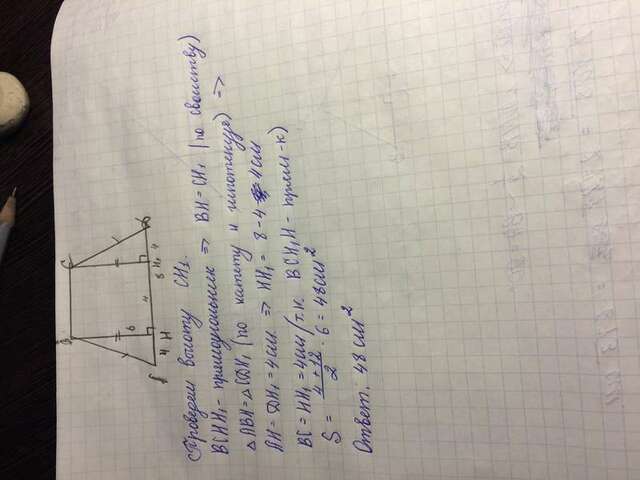 B C
6
4
A 4 H 8 H₁ 4 D
Проведем высоту CH₁.
BCHH₁ - прямоугольник => BH = CH₁ (по свойству)
△ABH = △CDH₁ (по катету и гипотенузе) =>
AH = DH₁ = 4см => HH₁ = 8-4 4см
BC = HH₁ = 4см (т.к. BCH₁H - прям-к)
S = (4+12)/2 · 6 = 48см²
Ответ. 48 см²